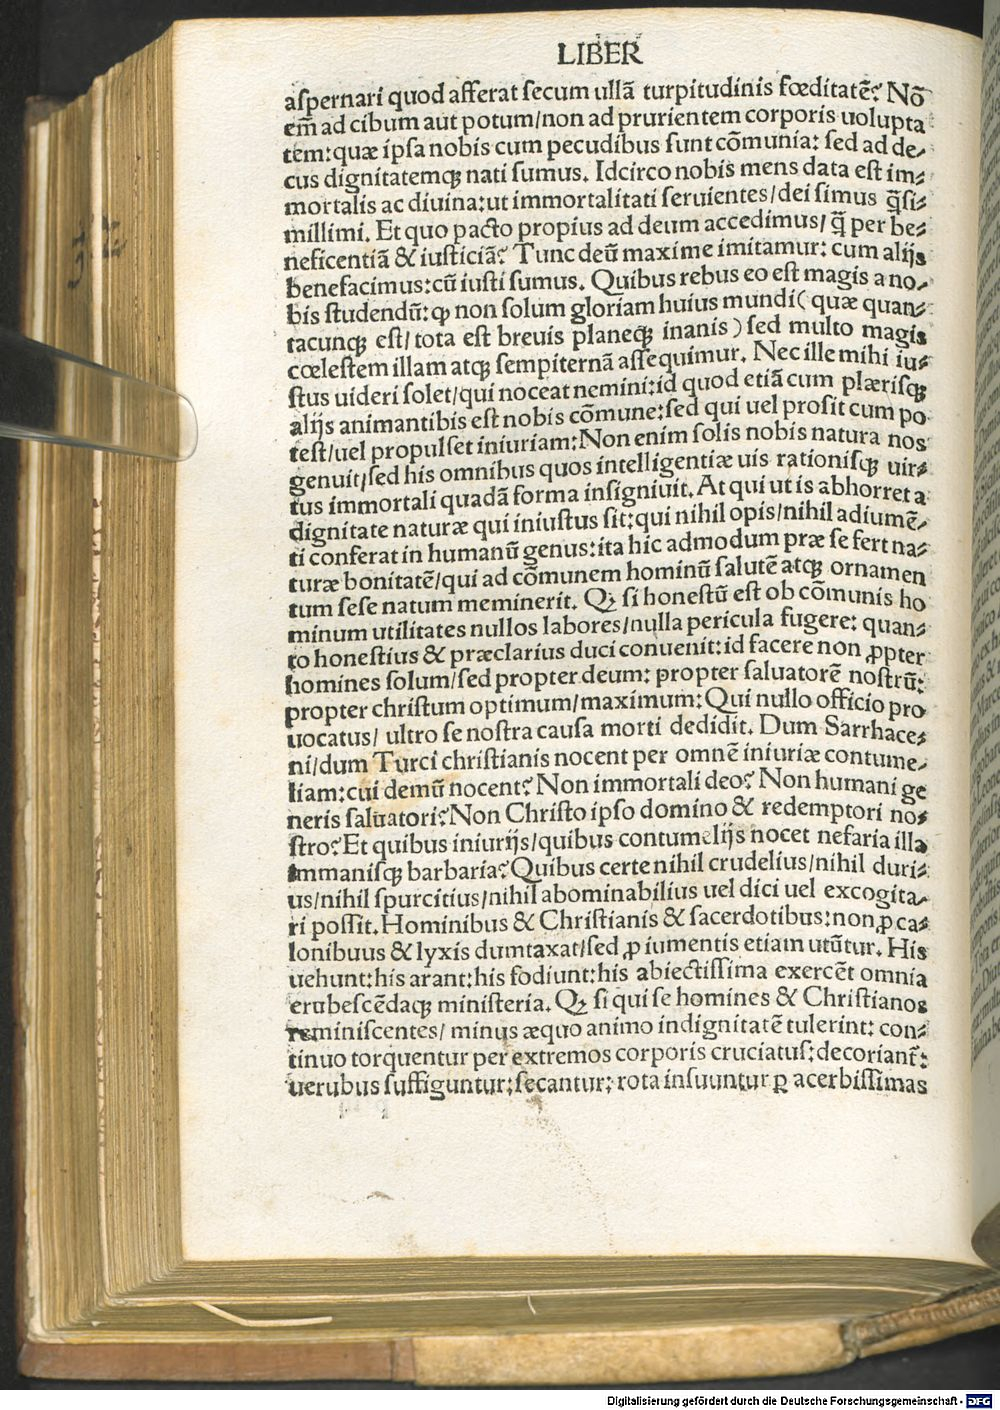 LIBER
aſpernari quod afferat ſecum ullā turpitudinis fœditatē? Nō
em̄ ad cibum aut potum/non ad prurientem corporis uolupta
tem:quæ ipſa nobis cum pecudibus ſunt cōmunia: ſed ad de⸗
cus dignitatemqꝫ nati ſumus. Idcirco nobis mens data eſt im⸗
mortalis ac diuina:ut immortalitati ſeruientes/dei ſimus q̄ſi⸗
millimi. Et quo pacto propius ad deum accedimus/ q̄ per be⸗
neficentiā & iuſticiā? Tunc deū maxime imitamur: cum alijs
benefacimus:cū iuſti ſumus. Quibus rebus eo eſt magis a no⸗
bis ſtudendū: ꝙ non ſolum gloriam huius mundi( quæ quan⸗
tacunqꝫ eſt/ tota eſt breuis planeqꝫ inanis ) ſed multo magis
cœleſtem illam atqꝫ ſempiternā aſſequimur. Nec ille mihi iu⸗
ſtus uideri ſolet/qui noceat nemini:id quod etiā cum plæriſqꝫ
alijs animantibus eſt nobis cōmune:ſed qui uel profit cum po
teſt/uel propulſet iniuriam:Non enim ſolis nobis natura nos
genuit/ſed his omnibus quos intelligentiæ uis rationiſqꝫ uir⸗
tus immortali quadā forma inſigniuit. At qui ut is abhorret a
dignitate naturæ qui iniuſtus ſit:qui nihil opis/nihil adiumē⸗
ti conferat in humanū genus:ita hic admodum præ ſe fert na⸗
turæ bonitatē/qui ad cōmunem hominū ſalutē atqꝫ ornamen
tum ſeſe natum meminerit. Qꝫ ſi honeſtū eſt ob cōmunis ho
minum utilitates nullos labores/nulla pericula fugere: quan⸗
to honeſtius & præclarius duci conuenit:id facere non ꝓpter
homines ſolum/ſed propter deum: propter ſaluatorē noſtrū:
propter chriſtum optimum/maximum: Qui nullo officio pro
uocatus/ ultro ſe noſtra cauſa morti dedidit. Dum Sarrhace⸗
ni/dum Turci chriſtianis nocent per omnē iniuriæ contume⸗
liam:cui demū nocent? Non immortali deo? Non humani ge
neris ſaluatori? Non Chriſto ipſo domino & redemptori no⸗
ſtro? Et quibus iniurijs/quibus contumelijs nocet nefaria illa
immaniſqꝫ barbaria? Quibus certe nihil crudelius/nihil duri⸗
us/nihil ſpurcitius/nihil abominabilius uel dici uel excogita⸗
ri poſſit. Hominibus & Chriſtianis & ſacerdotibus:non ꝓ ca⸗
lonibuus & lyxis dumtaxat/ſed ꝓ iumentis etiam utūtur. His
uehunt:his arant:his fodiunt:his abiectiſſima exercēt omnia
erubeſcēdaqꝫ miniſteria. Qꝫ ſi qui ſe homines & Chriſtianos
reminiſcentes/ minus æquo animo indignitatē tulerint: con⸗
tinuo torquentur per extremos corporis cruciatus:decoriant̄:
uerubus ſuffiguntur:ſecantur: rota inſuuntur ꝑ acerbiſſimas
Digitalisierung gefördert durch die Deutsche Forschungsgemeinschaft - DFG